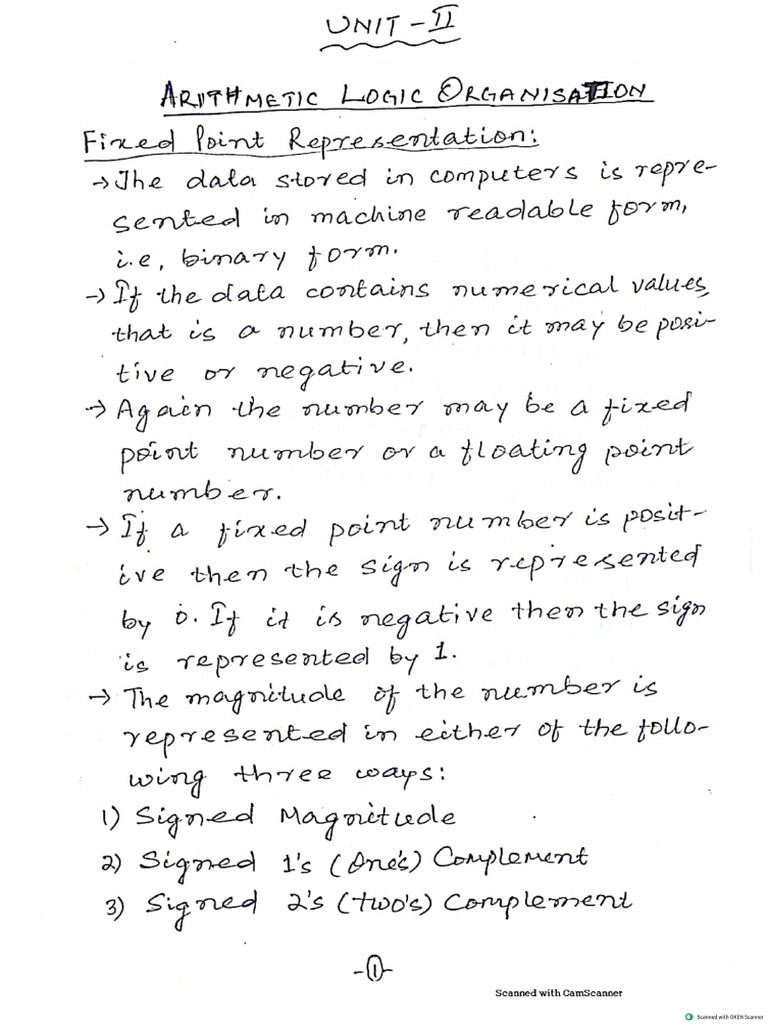 UNIT - II
ARITHMETIC LOGIC ORGANISATION
Fixed Point Representation:
→ The data stored in computers is repre-
sented in machine readable form,
i.e, binary form.
→ If the data contains numerical values,
that is a number, then it may be posi-
tive or negative.
→ Again the number may be a fixed
point number or a floating point
number.
→ If a fixed point number is posit-
ive then the sign is represented
by 0. If it is negative then the sign
is represented by 1.
→ The magnitude of the number is
represented in either of the follo-
wing three ways:
1) Signed Magnitude
2) Signed 1's (One's) Complement
3) Signed 2's (Two's) Complement
-1-
Scanned with CamScanner
Scanned with OKEN Scanner